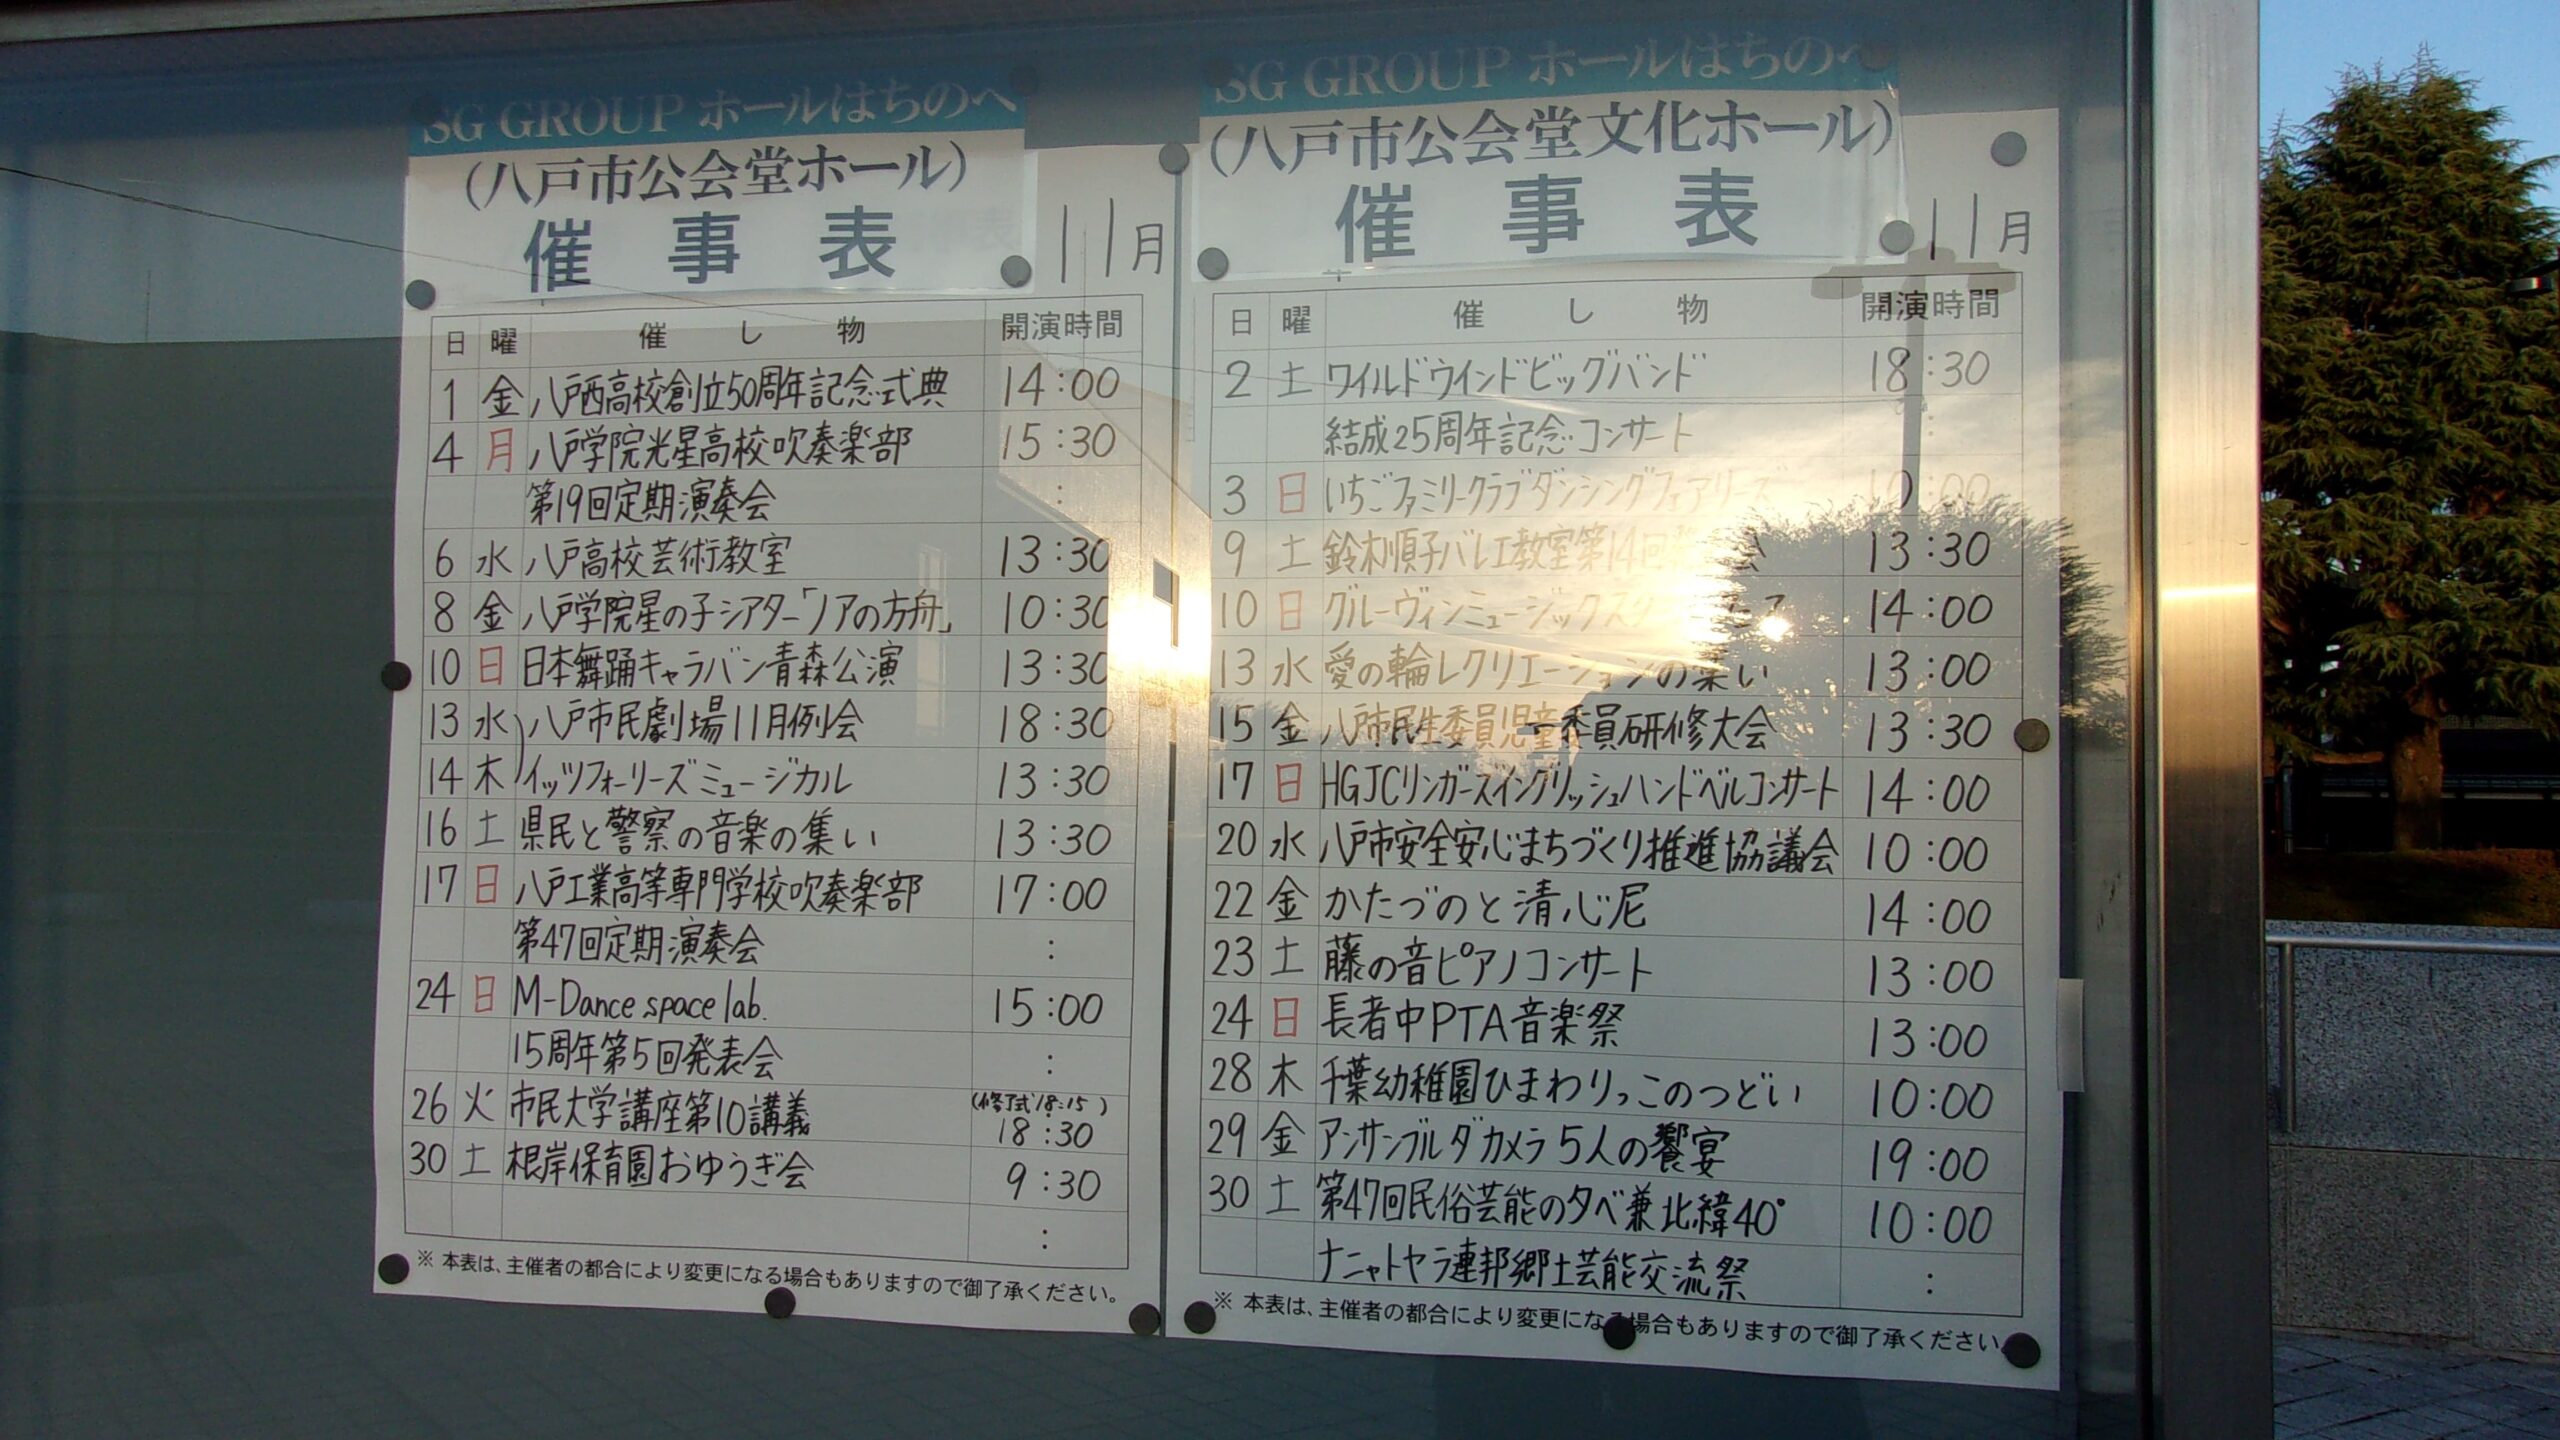 SG GROUP ホールはちのへ
(八戸市公会堂ホール)
催事表
11月
日 曜 催し物 開演時間
1 金 八戸西高校創立50周年記念式典 14:00
4 月 八戸学院光星高校吹奏楽部 15:30
第19回定期演奏会 :
6 水 八戸高校芸術教室 13:30
8 金 八戸学院星の子シアター「ノアの方舟」 10:30
10 日 日本舞踊キャラバン青森公演 13:30
13 水 八戸市民劇場11月例会 18:30
14 木 イッツフォーリーズミュージカル 13:30
16 土 県民と警察の音楽の集い 13:30
17 日 八戸工業高等専門学校吹奏楽部 17:00
第47回定期演奏会 :
24 日 M-Dance space lab. 15:00
15周年第5回発表会 :
26 火 市民大学講座第10講義 (修了式18:15) 18:30
30 土 根岸保育園おゆうぎ会 9:30
:
※ 本表は、主催者の都合により変更になる場合もありますので御了承ください。
SG GROUP ホールはちのへ
(八戸市公会堂文化ホール)
催事表
11月
日 曜 催し物 開演時間
2 土 ワイルドウインドビッグバンド 18:30
結成25周年記念コンサート :
3 日 いちごファミリークラブダンシングフェアリーズ
9 土 鈴木順子バレエ教室第14回 会 13:30
10 日 グルーヴィンミュージックス 14:00
13 水 愛の輪レクリエーションの集い 13:00
15 金 八戸市民生委員児童委員研修大会 13:30
17 日 HGJCリンガーズイングリッシュハンドベルコンサート 14:00
20 水 八戸市安全安心まちづくり推進協議会 10:00
22 金 かたづのと清心尼 14:00
23 土 藤の音ピアノコンサート 13:00
24 日 長者中PTA音楽祭 13:00
28 木 千葉幼稚園ひまわりっこのつどい 10:00
29 金 アンサンブルダカメラ5人の饗宴 19:00
30 土 第47回民俗芸能の夕べ兼北緯40° 10:00
ナニャトヤラ連邦郷土芸能交流祭 :
※ 本表は、主催者の都合により変更になる場合もありますので御了承ください。